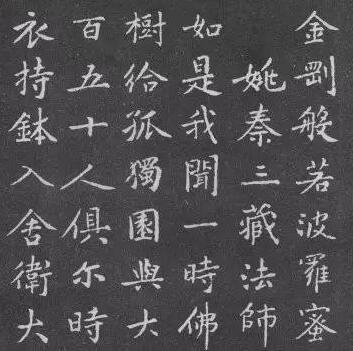 金剛般若波羅蜜
姚秦三藏法師
如是我聞一時佛
樹給孤獨園與大
百五十人俱尓時
衣持鉢入舍衛大